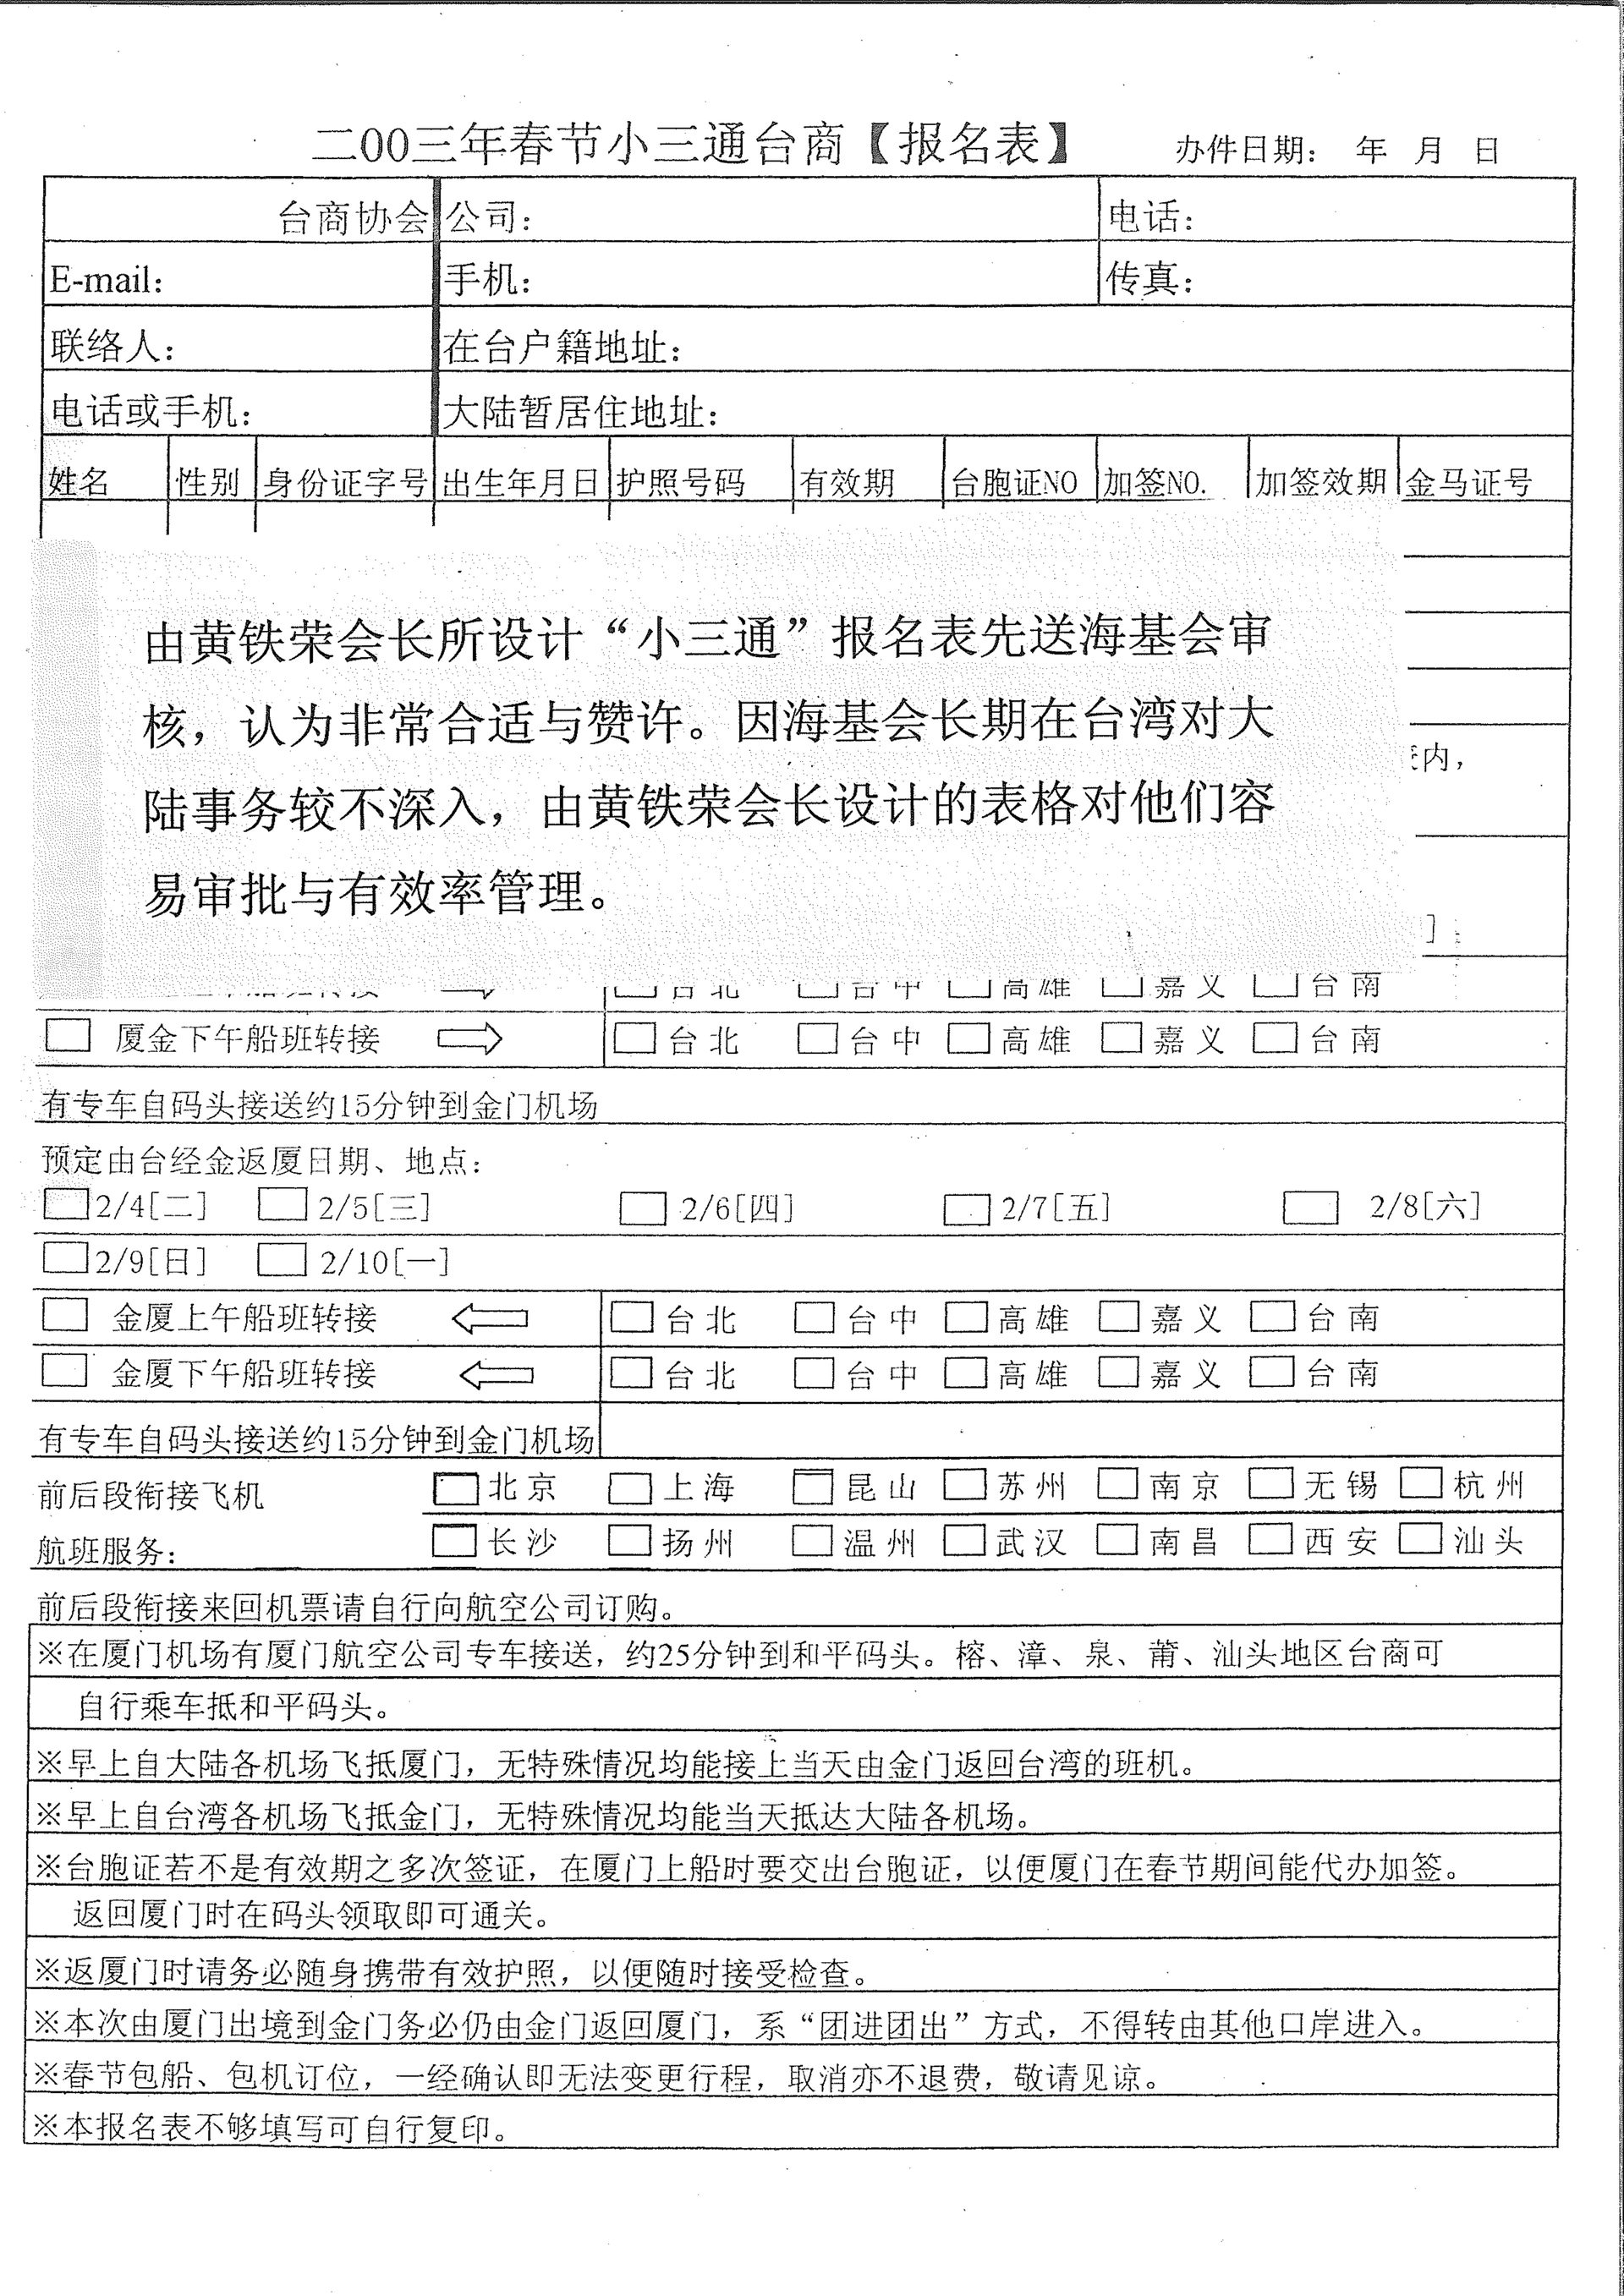 二00三年春节小三通台商【报名表】 办件日期： 年 月 日
台商协会 公司： 电话：
E-mail： 手机： 传真：
联络人： 在台户籍地址：
电话或手机： 大陆暂居住地址：
姓名 性别 身份证字号 出生年月日 护照号码 有效期 台胞证NO 加签NO. 加签效期 金马证号
由黄铁荣会长所设计“小三通”报名表先送海基会审
核，认为非常合适与赞许。因海基会长期在台湾对大
内，
陆事务较不深入，由黄铁荣会长设计的表格对他们容
易审批与有效率管理。
]
台北 台中 高雄 嘉义 台南
厦金下午船班转接 台北 台中 高雄 嘉义 台南
有专车自码头接送约15分钟到金门机场
预定由台经金返厦日期、地点：
2/4[二] 2/5[三] 2/6[四] 2/7[五] 2/8[六]
2/9[日] 2/10[一]
金厦上午船班转接 台北 台中 高雄 嘉义 台南
金厦下午船班转接 台北 台中 高雄 嘉义 台南
有专车自码头接送约15分钟到金门机场
前后段衔接飞机 北京 上海 昆山 苏州 南京 无锡 杭州
航班服务： 长沙 扬州 温州 武汉 南昌 西安 汕头
前后段衔接来回机票请自行向航空公司订购。
※在厦门机场有厦门航空公司专车接送，约25分钟到和平码头。榕、漳、泉、莆、汕头地区台商可
自行乘车抵和平码头。
※早上自大陆各机场飞抵厦门，无特殊情况均能接上当天由金门返回台湾的班机。
※早上自台湾各机场飞抵金门，无特殊情况均能当天抵达大陆各机场。
※台胞证若不是有效期之多次签证，在厦门上船时要交出台胞证，以便厦门在春节期间能代办加签。
返回厦门时在码头领取即可通关。
※返厦门时请务必随身携带有效护照，以便随时接受检查。
※本次由厦门出境到金门务必仍由金门返回厦门，系“团进团出”方式，不得转由其他口岸进入。
※春节包船、包机订位，一经确认即无法变更行程，取消亦不退费，敬请见谅。
※本报名表不够填写可自行复印。